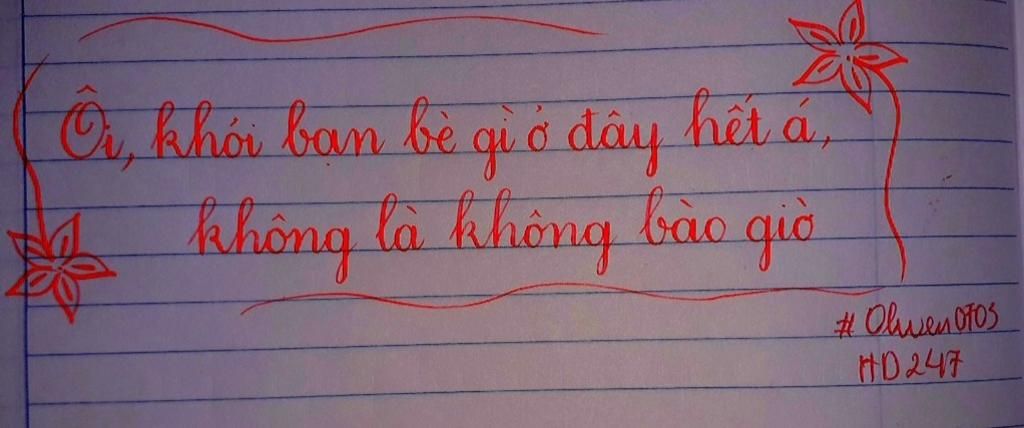 Ôi, khỏi bạn bè gì ở đây hết á,
không là không bào giờ
#Olwen0703
HD247